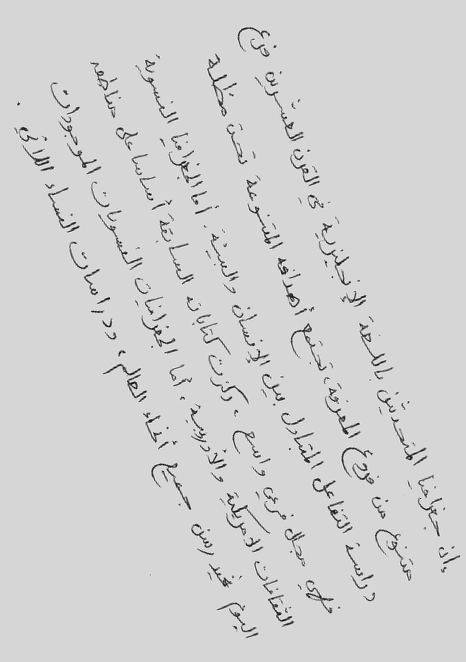 وان جغرافيا المتحدثين باللغة الإنجليزية في القرن العشرين فرع
متنوع من فروع المعرفة، تجتمع أهدافه المتنوعة تحت مظلة
دراسة التفاعل المتبادل بين الإنسان والبيئة. أما الجغرافيا النسوية
فهي مجال فرعي واسع، ركزت كتاباته السابقة أساسا على مناطق
الثقافات الأمريكية والأوروبية، أما الجغرافيات النسويات الموجودات
اليوم فيدرسن جميع أنحاء العالم، ودراسات النساء اللاتي.